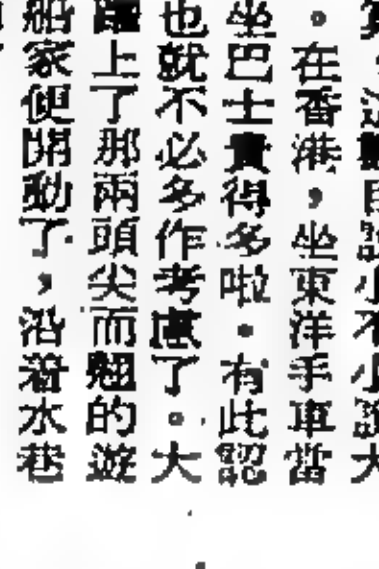 。在香港，坐東洋手車當
坐巴士貴得多啦。有此認
也就不必多作考慮了。大
上了那兩頭尖而翹的遊
船家便開動了，沿着水巷